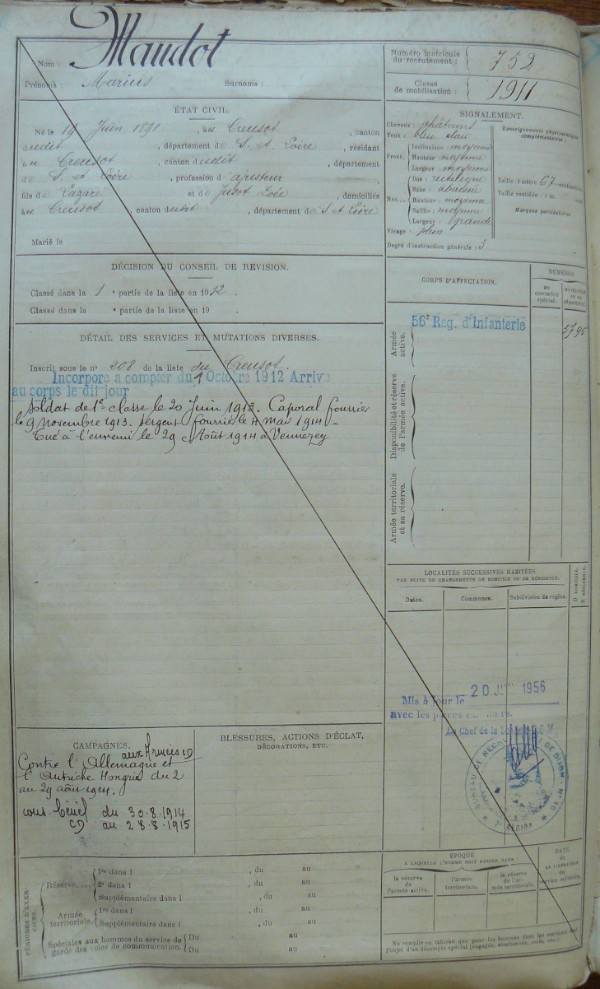 Nom : Maudot
Prénoms : Marius Surnoms :
ÉTAT CIVIL.
Né le 19 Juin 1891, au Creusot, canton
dudit, département de S. et Loire, résidant
au Creusot, canton dudit, département
de S. et Loire, profession d'ajusteur
fils de Lazare et de Judot Zoé, domiciliés
au Creusot, canton dudit, département de S. et Loire
Marié le
DÉCISION DU CONSEIL DE REVISION.
Classé dans la 1e partie de la liste en 1912.
Classé dans la e partie de la liste en 19
DÉTAIL DES SERVICES ET MUTATIONS DIVERSES.
Inscrit sous le n° 208 de la liste du Creusot
Incorporé à compter du Octobre 1912 Arrivé
au corps le dit jour
Soldat de 1e classe le 20 Juin 1913. Caporal fourrier
le 9 novembre 1913. Sergent fourrier le 4 mai 1914.
Tué à l'ennemi le 29 Août 1914 à Vennezey
CAMPAGNES.
aux Armées CD
Contre l'Allemagne et
l'Autriche Hongrie du 2
au 29 août 1914.
du 30.8.1914
CD au 28-8-1915
BLESSURES, ACTIONS D'ÉCLAT,
DÉCORATIONS, ETC.
PÉRIODES D'EXERCICES.
Réserve.
1re dans l , du au
2e dans l , du au
Supplémentaire dans l , du au
Armée territoriale.
1re dans l , du au
Supplémentaire dans l , du au
Spéciales aux hommes du service de garde des voies de communication.
Du au
Du au
Numéro matricule
du recrutement : 752
Classe
de mobilisation : 1911
SIGNALEMENT.
Cheveux châtains
Yeux : bleu clair
Front.
Inclinaison moyenne
Hauteur moyenne
Largeur moyenne
Nez.
Dos : rectiligne
Base : abaissé
Hauteur : moyenne
Saillie : moyenne
Largeur : grande
Visage : plein
Renseignements physionomiques
complémentaires :
Taille : 1 mètre 67 centimètres.
Taille rectifiée : 1 m. cent.
Marques particulières :
Degré d'instruction générale : 3
CORPS D'AFFECTATION.
NUMÉROS
Armée
active.
56e Rég. d'Infanterie
5795
Disponibilité et réserve
de l'armée active.
Armée territoriale
et sa réserve.
LOCALITÉS SUCCESSIVES HABITÉES
PAR SUITE DE CHANGEMENTS DE DOMICILE OU DE RÉSIDENCE.
Dates. Communes. Subdivision de région.
D. domicile.
R. résidence.
Mis à jour le 20 1956
avec les pièces
Le Chef de la
BUREAU DE DE DIJON
ÉPOQUE
À LAQUELLE L'HOMME DOIT PASSER DANS :
la réserve
de
l'armée active.
l'armée
territoriale.
la réserve
de l'armée territoriale.
DATE
de
LA LIBÉRATION
du
service militaire.